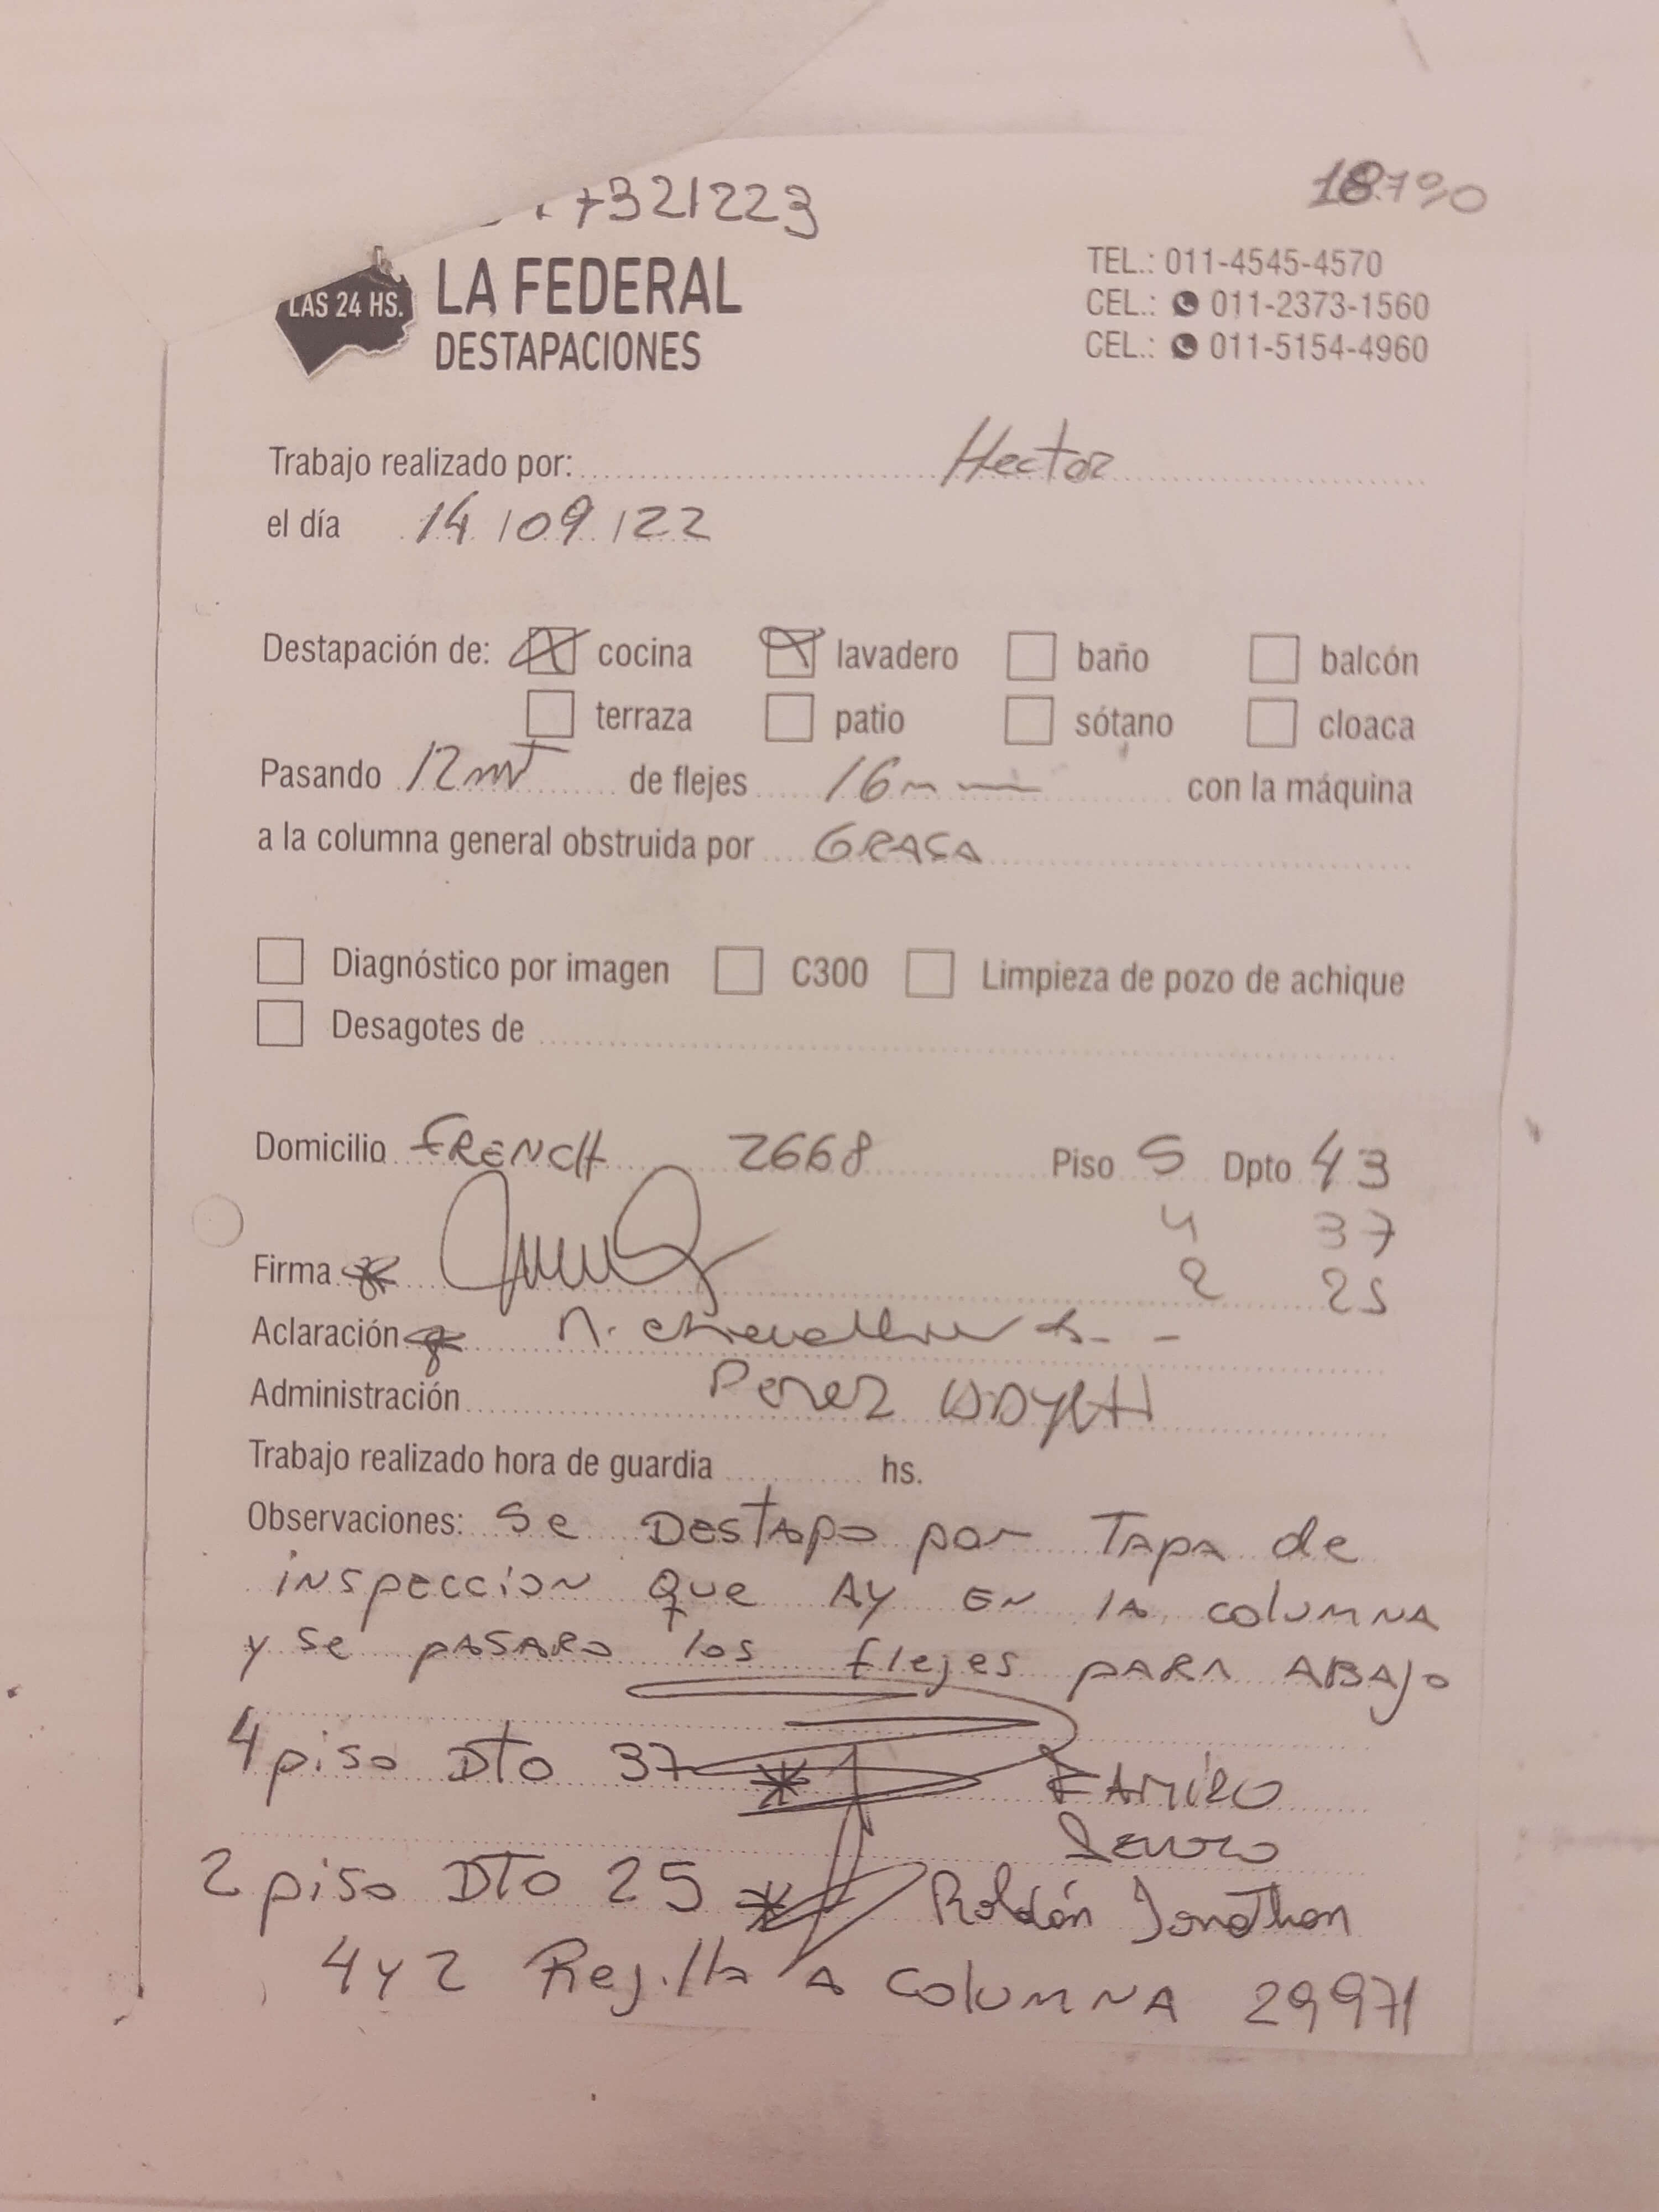 7321223
18.790
LAS 24 HS.
LA FEDERAL
DESTAPACIONES
TEL.: 011-4545-4570
CEL.: 011-2373-1560
CEL.: 011-5154-4960
Trabajo realizado por: Hector
el día 14/09/22
Destapación de: cocina lavadero baño balcón
terraza patio sótano cloaca
Pasando 12mt de flejes 16mm con la máquina
a la columna general obstruida por GRASA
Diagnóstico por imagen C300 Limpieza de pozo de achique
Desagotes de
Domicilio FRENCH 2668 Piso 5 Dpto 43
4 37
Firma
2 25
Aclaración
Administración Perez
Trabajo realizado hora de guardia hs.
Observaciones: Se DESTAPO por TAPA de
INSPECCION que AY EN LA COLUMNA
y se PASARO los flejes PARA ABAJO
4 piso Dto 37 RAMIRO
2 piso DTO 25 Roldán Jonathan
4 y 2 Rejilla A COLUMNA 29971